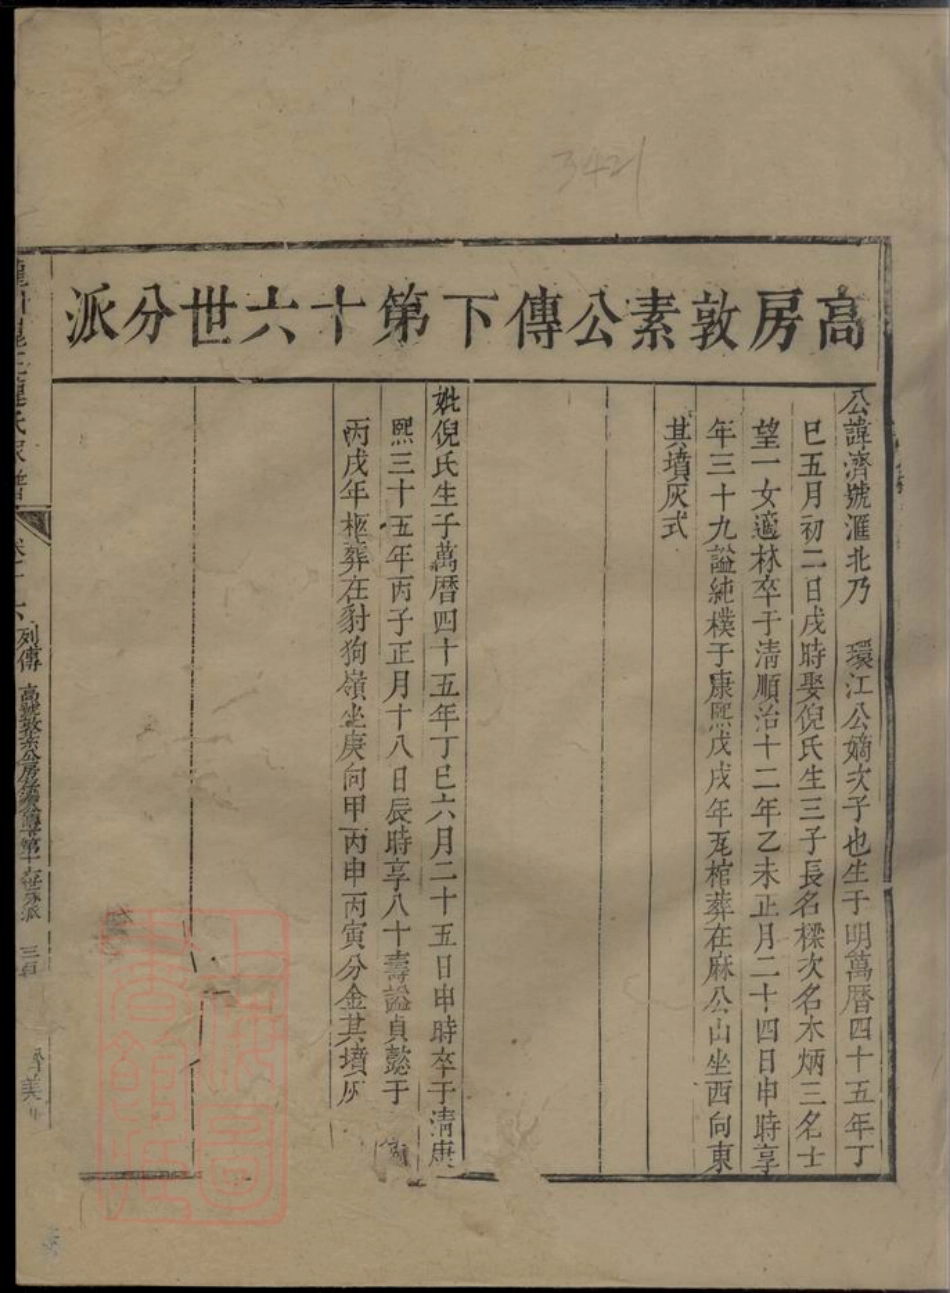 3421
高房敦素公傳下第十六世分派
公諱濟號滙北乃　環江公嫡次子也生于明萬曆四十五年丁
巳五月初二日戌時娶倪氏生三子長名樑次名木炳三名士
望一女適林卒于清順治十二年乙未正月二十四日申時享
年三十九謚純樸于康熙戊戌年瓦棺葬在麻公山坐西向東
其墳灰式
妣倪氏生于萬曆四十五年丁巳六月二十五日申時卒于清康
熙三十五年丙子正月十八日辰時享八十壽謚貞懿于
丙戌年柩葬在豺狗嶺坐庚向甲丙申丙寅分金其墳灰
列傳